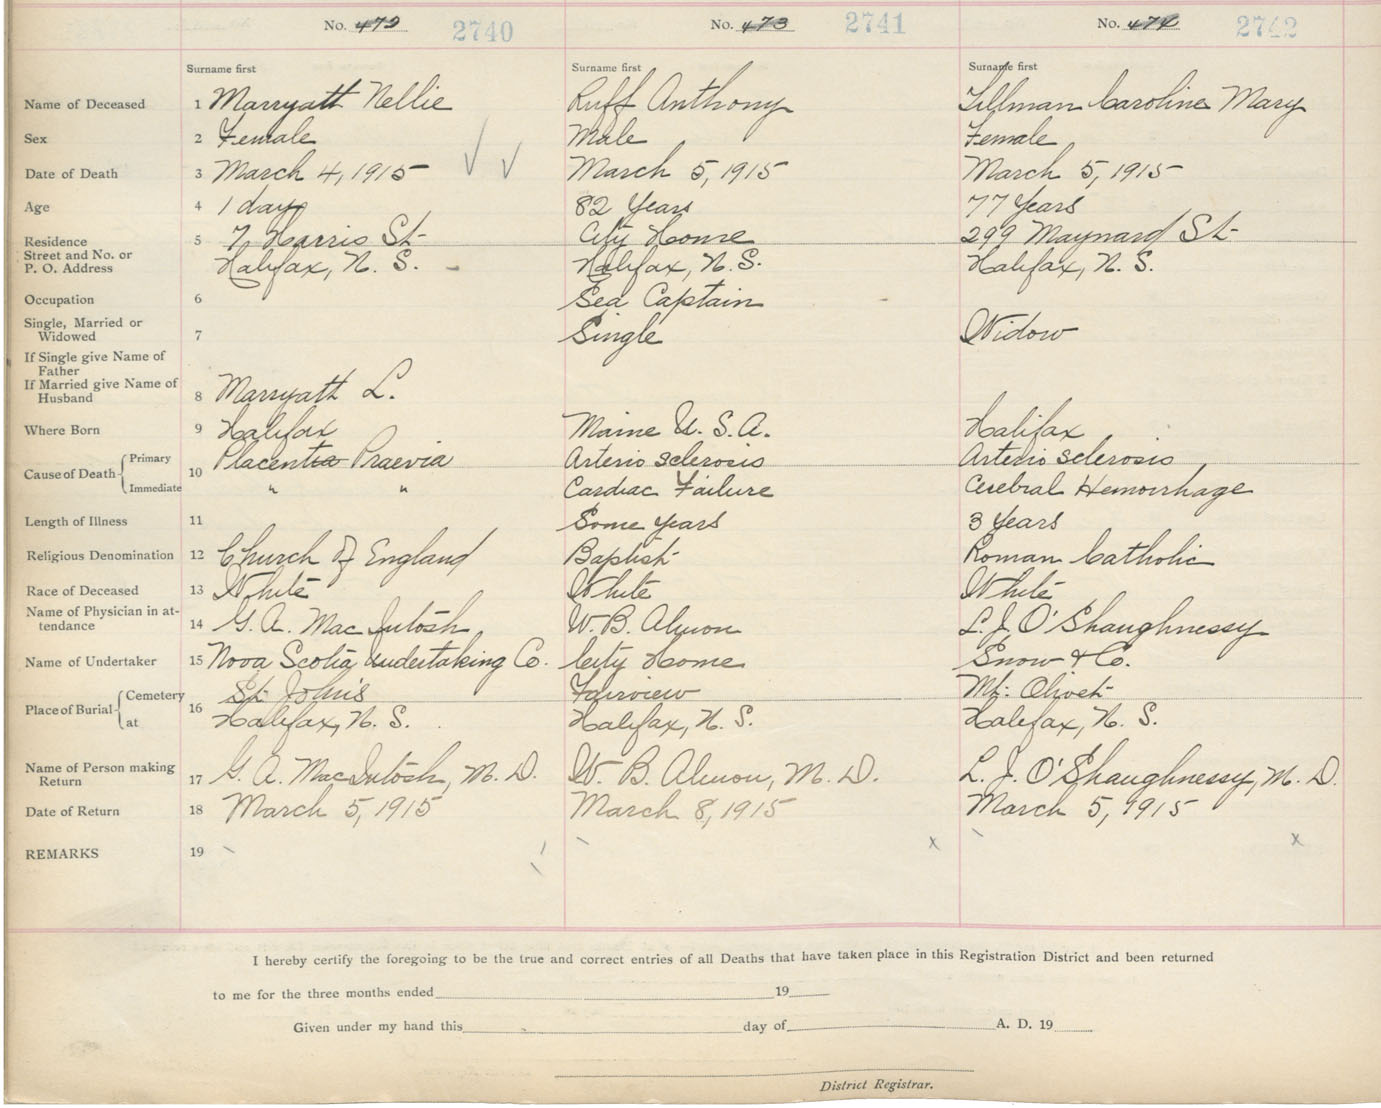 No. 472 2740 No. 473 2741 No. 474 2742
Surname first Surname first Surname first
Name of Deceased 1 Marryatt Nellie Ruff Anthony Tillman Caroline Mary
Sex 2 Female Male Female
Date of Death 3 March 4, 1915 March 5, 1915 March 5, 1915
Age 4 1 day 82 Years 77 Years
Residence 5 7 Harris St City Home 299 Maynard St
Street and No. or
P. O. Address Halifax, N. S. Halifax, N. S. Halifax, N. S.
Occupation 6 Sea Captain
Single, Married or
Widowed 7 Single Widow
If Single give Name of
Father
If Married give Name of
Husband 8 Marryatt L.
Where Born 9 Halifax Maine U. S. A. Halifax
Cause of Death 10 Primary Placenta Praevia Arterio Sclerosis Arterio Sclerosis
Immediate " " Cardiac Failure Cerebral Hemorrhage
Length of Illness 11 Some Years 3 Years
Religious Denomination 12 Church of England Baptist Roman Catholic
Race of Deceased 13 White White White
Name of Physician in at-
tendance 14 G. A. MacIntosh W. B. Almon L. J. O'Shaughnessy
Name of Undertaker 15 Nova Scotia Undertaking Co. City Home Snow & Co.
Place of Burial 16 Cemetery St. John's Fairview Mt. Olivet
at Halifax, N. S. Halifax, N. S. Halifax, N. S.
Name of Person making
Return 17 G. A. MacIntosh, M. D. W. B. Almon, M. D. L. J. O'Shaughnessy, M. D.
Date of Return 18 March 5, 1915 March 8, 1915 March 5, 1915
REMARKS 19 x x
I hereby certify the foregoing to be the true and correct entries of all Deaths that have taken place in this Registration District and been returned
to me for the three months ended 19
Given under my hand this day of A. D. 19
District Registrar.